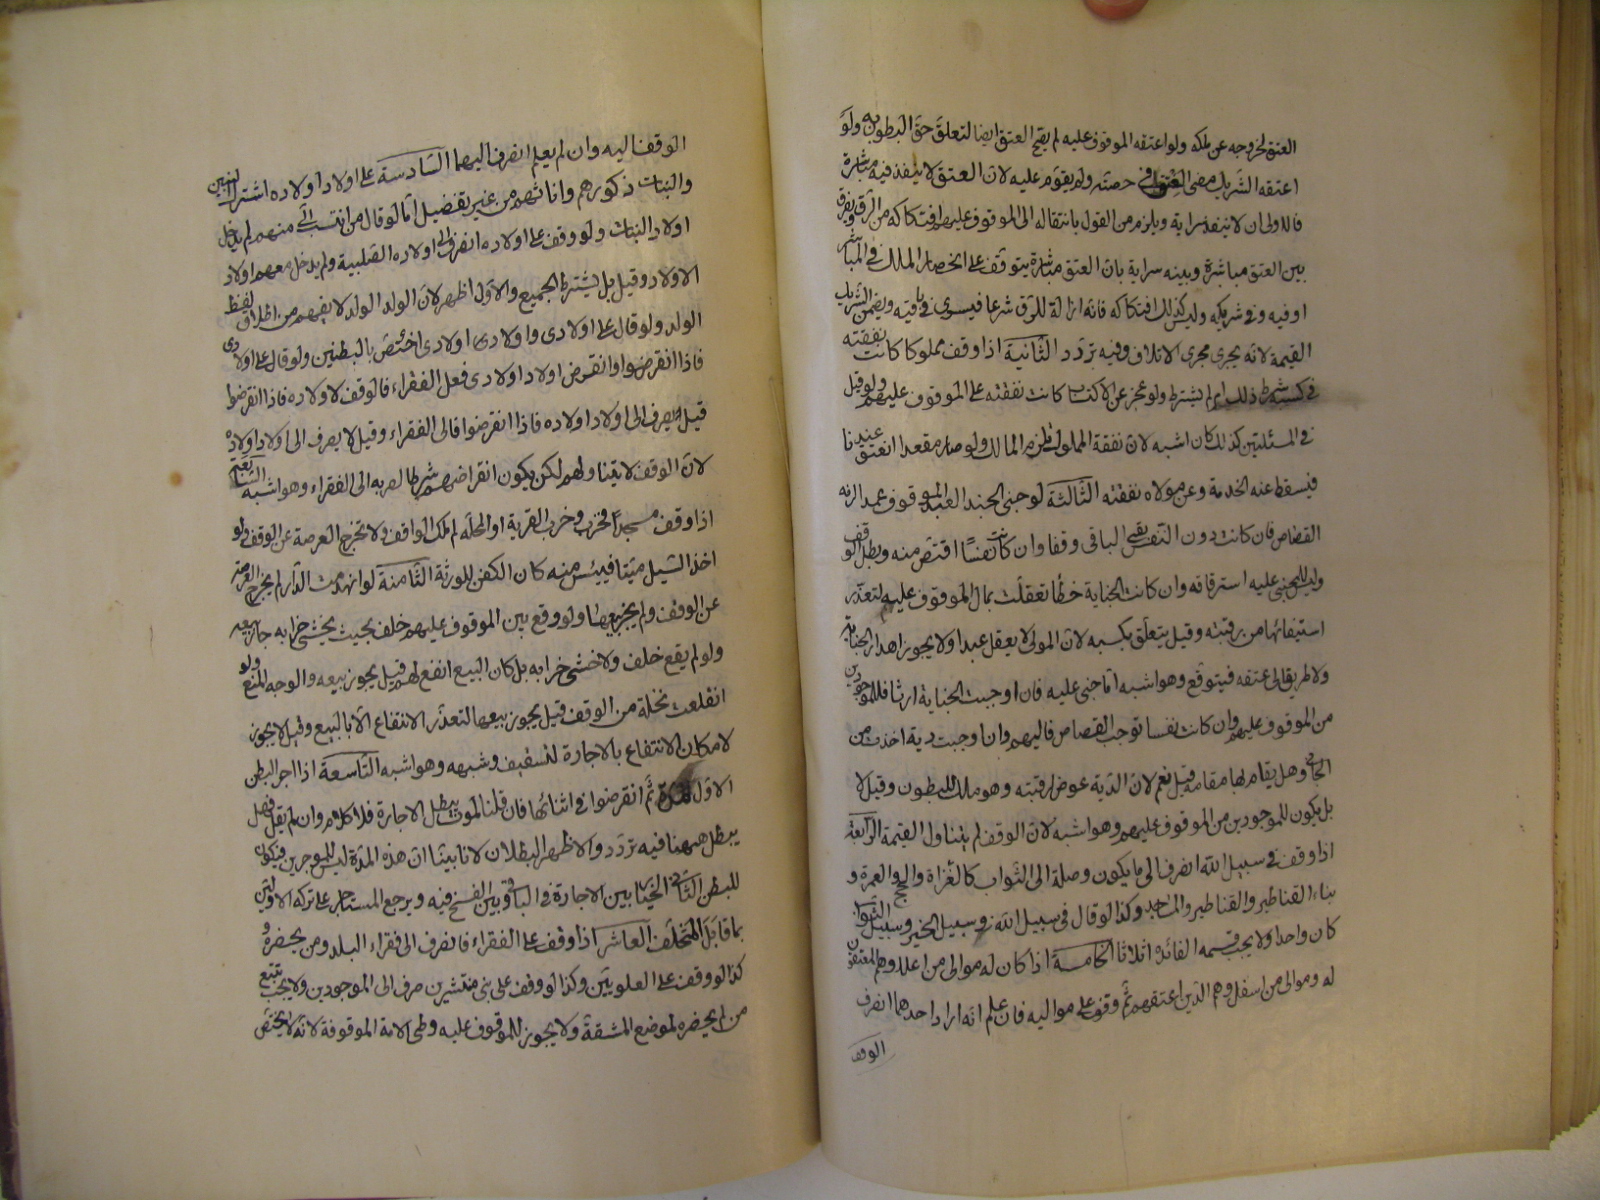 العتق لخروجه عن ملكه ولو اعتقه الموقوف عليه لم يصح العتق ايضا لتعلق حق البطون به ولو
اعتقه الشريك مضى العتق في حصته ولم يقوم عليه لان العتق لا ينفذ فيه مباشرة
فالاولى ان لا ينفذ سراية ويلزم من القول بانتقاله الى الموقوف عليهم افتكاكه من الرق ويفرق
بين العتق مباشرة وبينه سراية بان العتق مباشرة يتوقف على انحصار الملك في المباشر
او فيه وفي شريكه وليس كذلك افتكاكه فانه ازالة للرق شرعا فيسري في باقيه ويضمن الشريك
القيمة لانه يجرى مجرى الاتلاف وفيه تردد الثانية اذا وقف مملوكا كانت نفقته
في كسبه شرط ذلك ام لم يشترط ولو عجز عن الاكتساب كانت نفقته على الموقوف عليهم ولو قيل
في المسئلتين كذلك كان اشبه لان نفقة المملوك تلزم المالك ولو صار مقعدا انعتق عندنا
فيسقط عنه الخدمة وعن مولاه نفقته الثالثة لو جنى العبد الموقوف عمدا لزمه
القصاص فان كانت دون النفس بقى الباقى وقفا وان كانت نفسا اقتص منه وبطل الوقف
وليس للمجنى عليه استرقاقه وان كانت الجناية خطأ تعلقت بمال الموقوف عليه لتعذر
استيفائها من رقبته وقيل يتعلق بكسبه لان المولى لا يعقل عبدا ولا يجوز اهدار الجناية
ولا طريق الى عتقه فيتوقع وهو اشبه اما لو جنى عليه فان اوجبت الجناية ارشا فللموجودين
من الموقوف عليهم وان كانت نفسا توجب القصاص فاليهم وان اوجبت دية اخذت من
الجاني وهل يقام بها مقامه قيل نعم لان الدية عوض رقبته وهو ملك للبطون وقيل لا
بل يكون للموجودين من الموقوف عليهم وهو اشبه لان الوقف لم يتناول القيمة الرابعة
اذا وقف في سبيل الله انصرف الى ما يكون وصلة الى الثواب كالغزاة والحج والعمرة و
بناء القناطير والقناطير والمساجد وكذا لو قال في سبيل الله وسبيل الخير وسبيل الثواب
كان واحدا ولا يجب قسمه الفائدة اثلاثا الخامسة اذا كان له موالى من اعلا وهم المعتقون
له وموالى من اسفل وهم الذين اعتقهم ثم وقف على مواليه فان علم انه اراد احدهما انصرف
الوقف
الوقف اليه وان لم يعلم انصرف اليهما السادسة على اولاد اولاده اشترك البنين
والبنات ذكورهم واناثهم من غير تفضيل اما لو قال من انتسب الى منهم لم يدخل
اولاد البنات ولو وقف على اولاده انصرف الى اولاده الصلبية ولم يدخل معهم اولاد
الاولاد وقيل بل يشترط الجميع والاول اظهر لان الولد الولد لا يفهم من اطلاق لفظ
الولد ولو قال على اولادى واولادى اولادى اختص بالبطنين ولو قال على اولادى
فاذا انقرضوا وانقرض اولاد اولادى فعلى الفقراء فالوقف لاولاده فاذا انقرضوا
قيل يصرف الى اولاد اولاده فاذا انقرضوا فالى الفقراء وقيل لا يصرف الى اولاد اولاده
لان الوقف لا يتناولهم لكن يكون انقراضهم شرطا لصرفه الى الفقراء وهو اشبه السابعة
اذا وقف مسجدا فخرب وخرب القرية او المحله لم يملك الواقف ولا تخرج العرصة عن الوقف ولو
اخذ السيل ميتا فييئس منه كان الكفن للورثة الثامنة لو انهدمت الدار لم يخرج العرصة
عن الوقف ولم يجز بيعها ولو وقع بين الموقوف عليهم خلف بحيث يخشى خرابه جاز بيعه
ولو لم يقع خلف ولا خشى خرابه بل كان البيع انفع لهم قيل يجوز بيعه والوجه المنع ولو
انقلعت نخلة من الوقف قيل يجوز بيعها لتعذر الانتفاع الا بالبيع وقيل لا يجوز
لامكان الانتفاع بالاجارة لتسقيف وشبهه وهو اشبه التاسعة اذا اجر البطن
الاول ثم انقرضوا في اثنائها فان قلنا الموت يبطل الاجارة فلا كلام وان لم نقل فهل
يبطل ههنا فيه تردد والاظهر البطلان لانا بينا ان هذه المدة ليس للموجرين فيكون
للبطن الثاني الخيار بين الاجارة في الباقي وبين الفسخ فيه ويرجع المستاجر على تركة الاولين
بما قابل المتخلف العاشر اذا وقف على الفقراء فانصرف الى فقراء البلد ومن يحضره و
كذا لو وقف على العلويين وكذا لو وقف على بنى منتشرين صرف الى الموجودين ولا يجب تتبع
من لم يحضره لموضع المشقة ولا يجوز للموقوف عليه وطى الامة الموقوفة لانه لا يختص